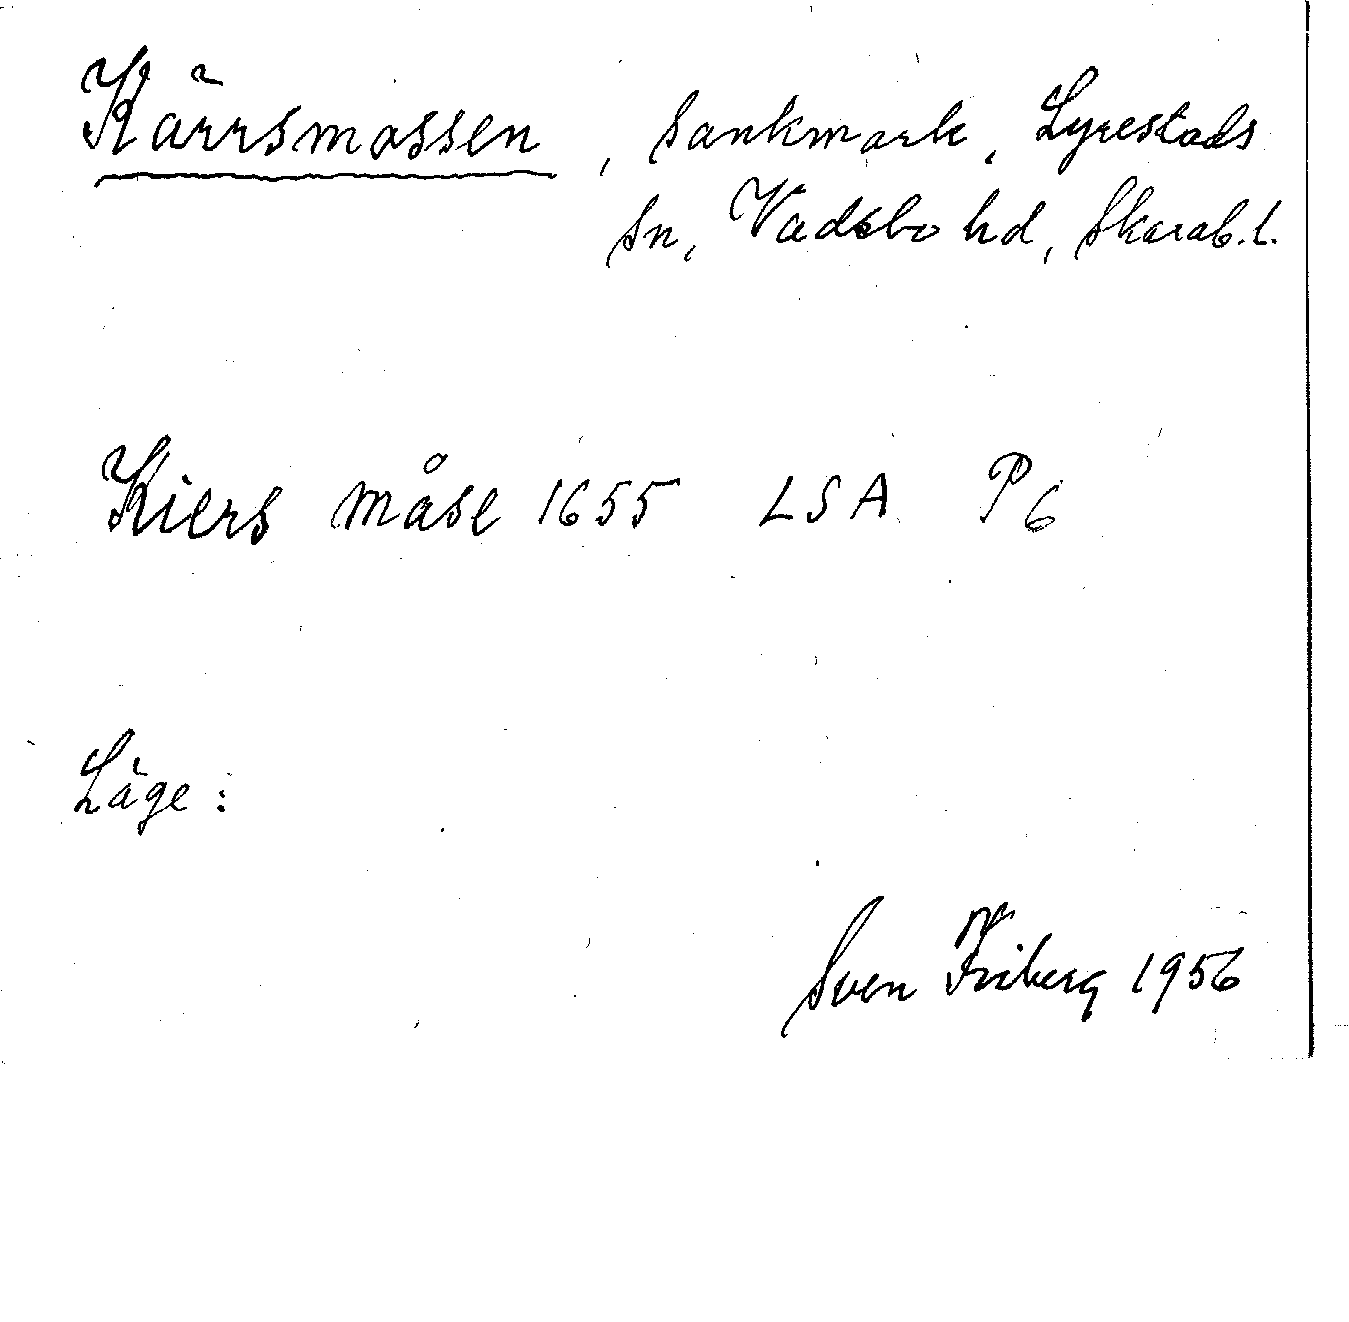 Kärrsmossen, sankmark, Lyrestads
sn, Vadsbo hd, Skarab.l.
Kiers måse 1655 LSA P6
Läge:
Sven Friberg 1956